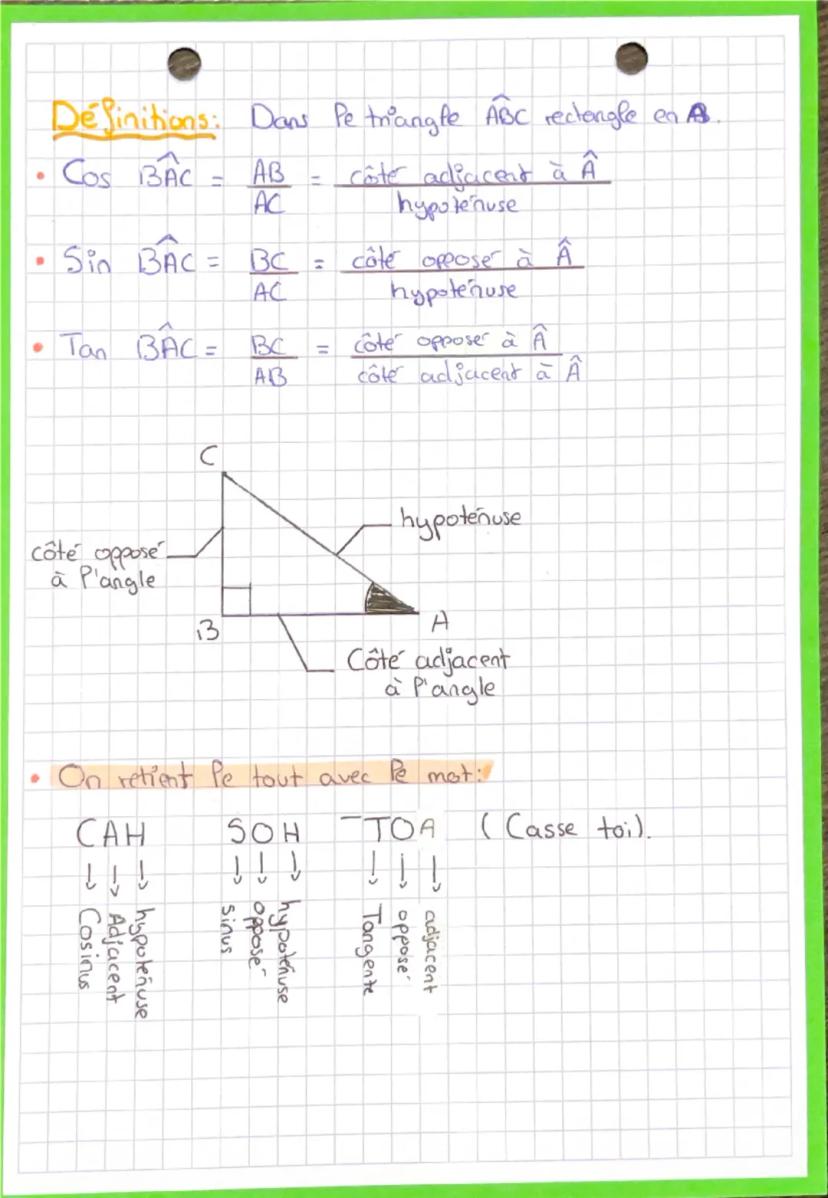 Définitions: Dans le triangle AB̂C rectangle en
• Cos BÂC = AB/AC = côté adjacent à Â/hypoténuse
• Sin BÂC = BC/AC = côté opposé à Â/hypoténuse
• Tan BÂC = BC/AB = côté opposé à Â/côté adjacent à Â
C
hypoténuse
côté opposé
à l'angle
B
A
Côté adjacent
à l'angle
• On retient le tout avec le mot:
CAH SOH -TOA (Casse toi).
Cosinus
Adjacent
hypoténuse
sinus
opposé
hypoténuse
Tangente
opposé
adjacent